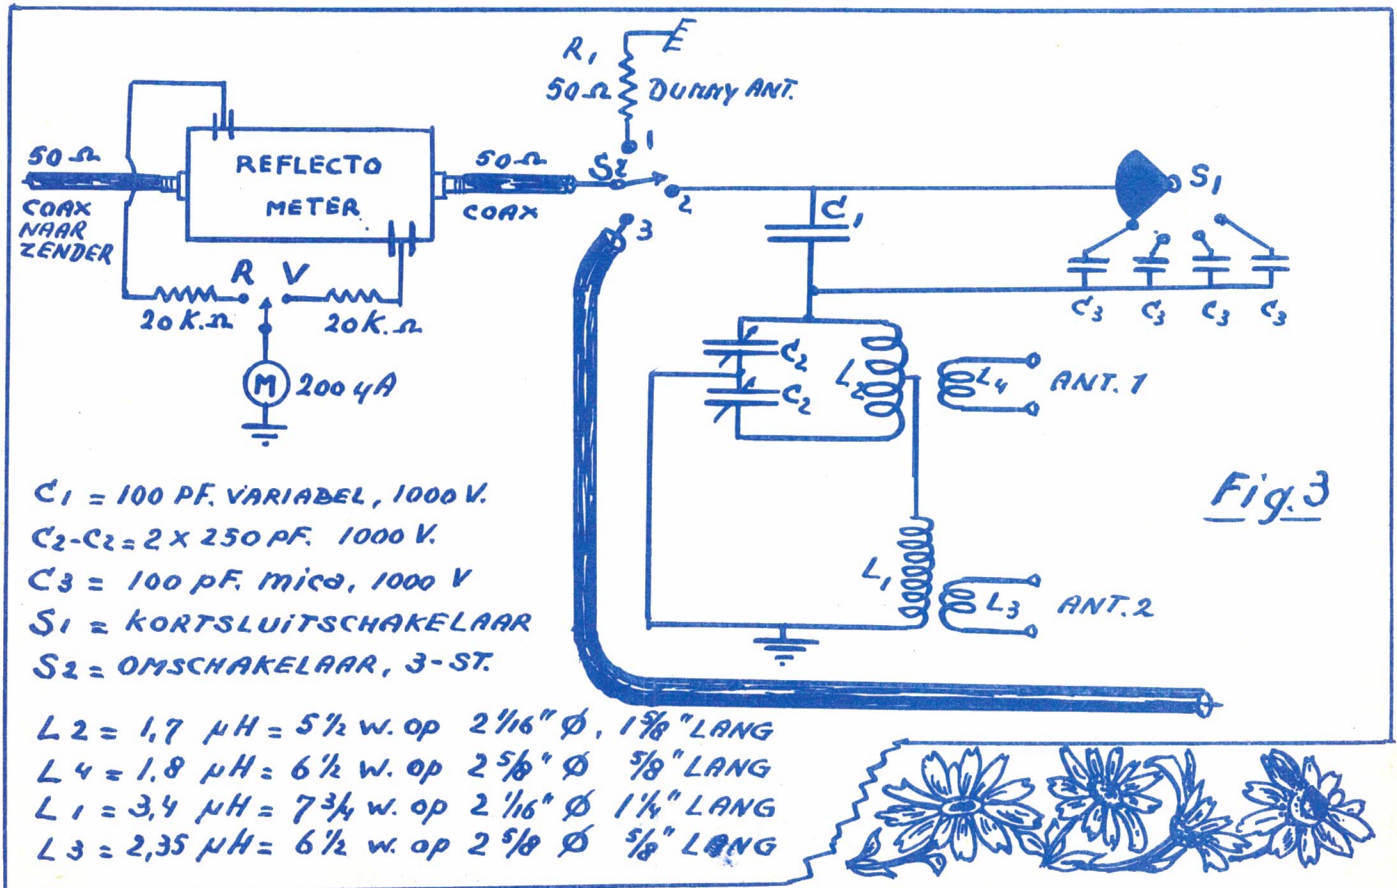 R1
50Ω DUMMY ANT.
50Ω
COAX
NAAR
ZENDER
REFLECTO
METER
50Ω
COAX
S2
1
2
3
S1
C1
C3 C3 C3 C3
R V
20K.Ω 20K.Ω
M 200 µA
C2
C2
L2
L4 ANT. 1
L1
L3 ANT. 2
Fig. 3
C1 = 100 PF. VARIABEL, 1000 V.
C2-C2 = 2 x 250 pF. 1000 V.
C3 = 100 pF. mica, 1000 V
S1 = KORTSLUITSCHAKELAAR
S2 = OMSCHAKELAAR, 3-ST.
L2 = 1,7 µH = 5 1/2 w. op 2 1/16" Ø, 1 5/8" LANG
L4 = 1,8 µH = 6 1/2 w. op 2 5/8" Ø 5/8" LANG
L1 = 3,4 µH = 7 3/4 w. op 2 1/16" Ø 1 1/4" LANG
L3 = 2,35 µH = 6 1/2 w. op 2 5/8 Ø 5/8" LANG